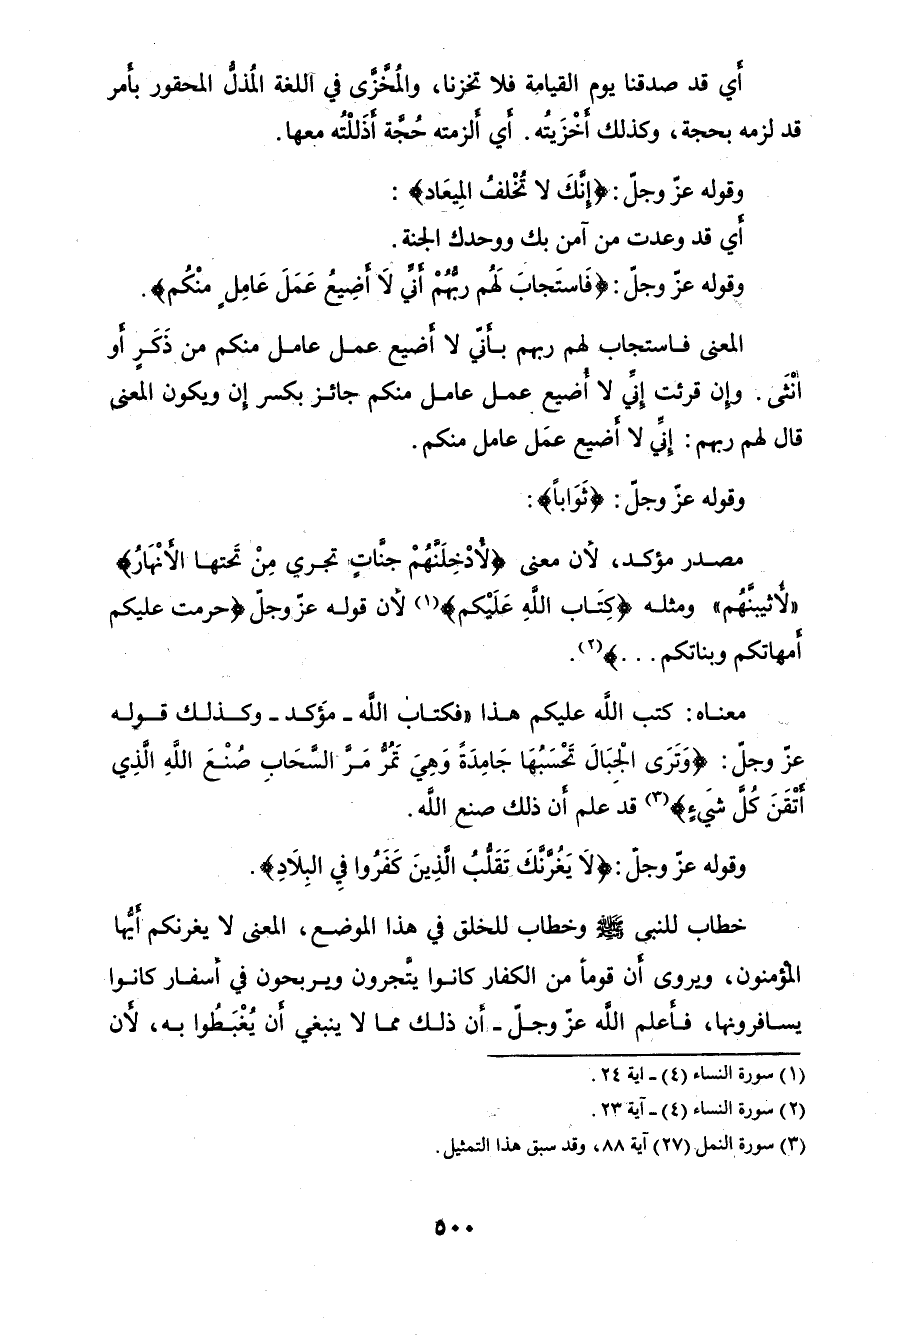 أَي قد صدقنا يوم القيامة فلا تخزنا، والُمخَّزَّى في اللغة الُمذلُّ المحقور بأَمر
قد لزمه بحجة، وكذلك أَخْزَيتُه. أَي أَلزمته حُجَّة أَذَلَلْتُه معها.
وقوله عزّ وجلّ: ﴿إِنَّكَ لا تُخْلفُ المِيعَاد﴾ :
أَي قد وعدت من آمن بك ووحدك الجنة.
وقوله عزّ وجلّ: ﴿فَاستَجابَ لَهُم ربُّهُمْ أَنِّي لَا أَضِيعُ عَمَلَ عَامِلٍ منْكُم﴾.
المعنى فاستجاب لهم ربهم بأَنّي لا أضيع عمل عامل منكم من ذَكَرٍ أَو
أُنْثَى. وإن قرئت إِنِّي لا أُضيع عمل عامل منكم جائز بكسر إن ويكون المعنى
قال لهم ربهم: إِنِّي لا أَضيع عمَل عامل منكم.
وقوله عزّ وجلّ: ﴿ثَوَاباً﴾:
مصدر مؤكد، لأن معنى ﴿لأُدْخِلَنَّهُمْ جنَّاتٍ تجري مِنْ تَحتها الأَنْهَارُ﴾
«لأُثيبنَّهُم» ومثله ﴿كِتَاب اللَّهِ عَلَيْكم﴾(١) لأن قوله عزّ وجلّ ﴿حرمت عليكم
أمهاتكم وبناتكم...﴾(٢).
معناه: كتب اللَّه عليكم هذا «فكتابُ اللَّه ـ مؤكد ـ وكذلك قوله
عزّ وجلّ: ﴿وَتَرَى الْجبَالَ تَحْسَبُهَا جَامِدَةً وَهِيَ تَمُرُّ مَرَّ السَّحَابِ صُنْعَ اللَّهِ الَّذِي
أَتْقَنَ كُلَّ شيءٍ﴾(٣) قد علم أن ذلك صنع اللَّه.
وقوله عزّ وجلّ: ﴿لَا يَغُرَّنَّكَ تَقَلُّبُ الَّذِينَ كَفَرُوا فِي البِلَادِ﴾.
خطاب للنبي ﷺ وخطاب للخلق في هذا الموضع، المعنى لا يغرنكم أَيُّها
المؤمنون، ويروى أن قوماً من الكفار كانوا يتَّجرون ويربحون في أسفار كانوا
يسافرونها، فأعلم اللَّه عزّ وجلّ ـ أن ذلك مما لا ينبغي أن يُغْبَطُوا به، لأن
(١) سورة النساء (٤) ـ اية ٢٤.
(٢) سورة النساء (٤) ـ آية ٢٣.
(٣) سورة النمل (٢٧) آية ٨٨، وقد سبق هذا التمثيل.
٥٠٠